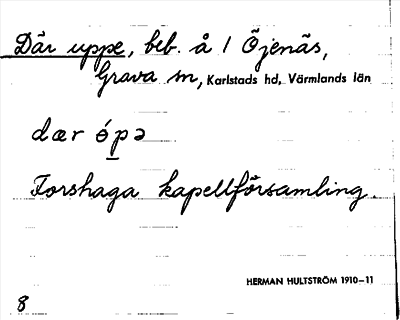 Där uppe, beb. å 1 Öjenäs,
Grava sn, Karlstads hd, Värmlands län
dær ópə
Forshaga kapellförsamling.
HERMAN HULTSTRÖM 1910–11
8